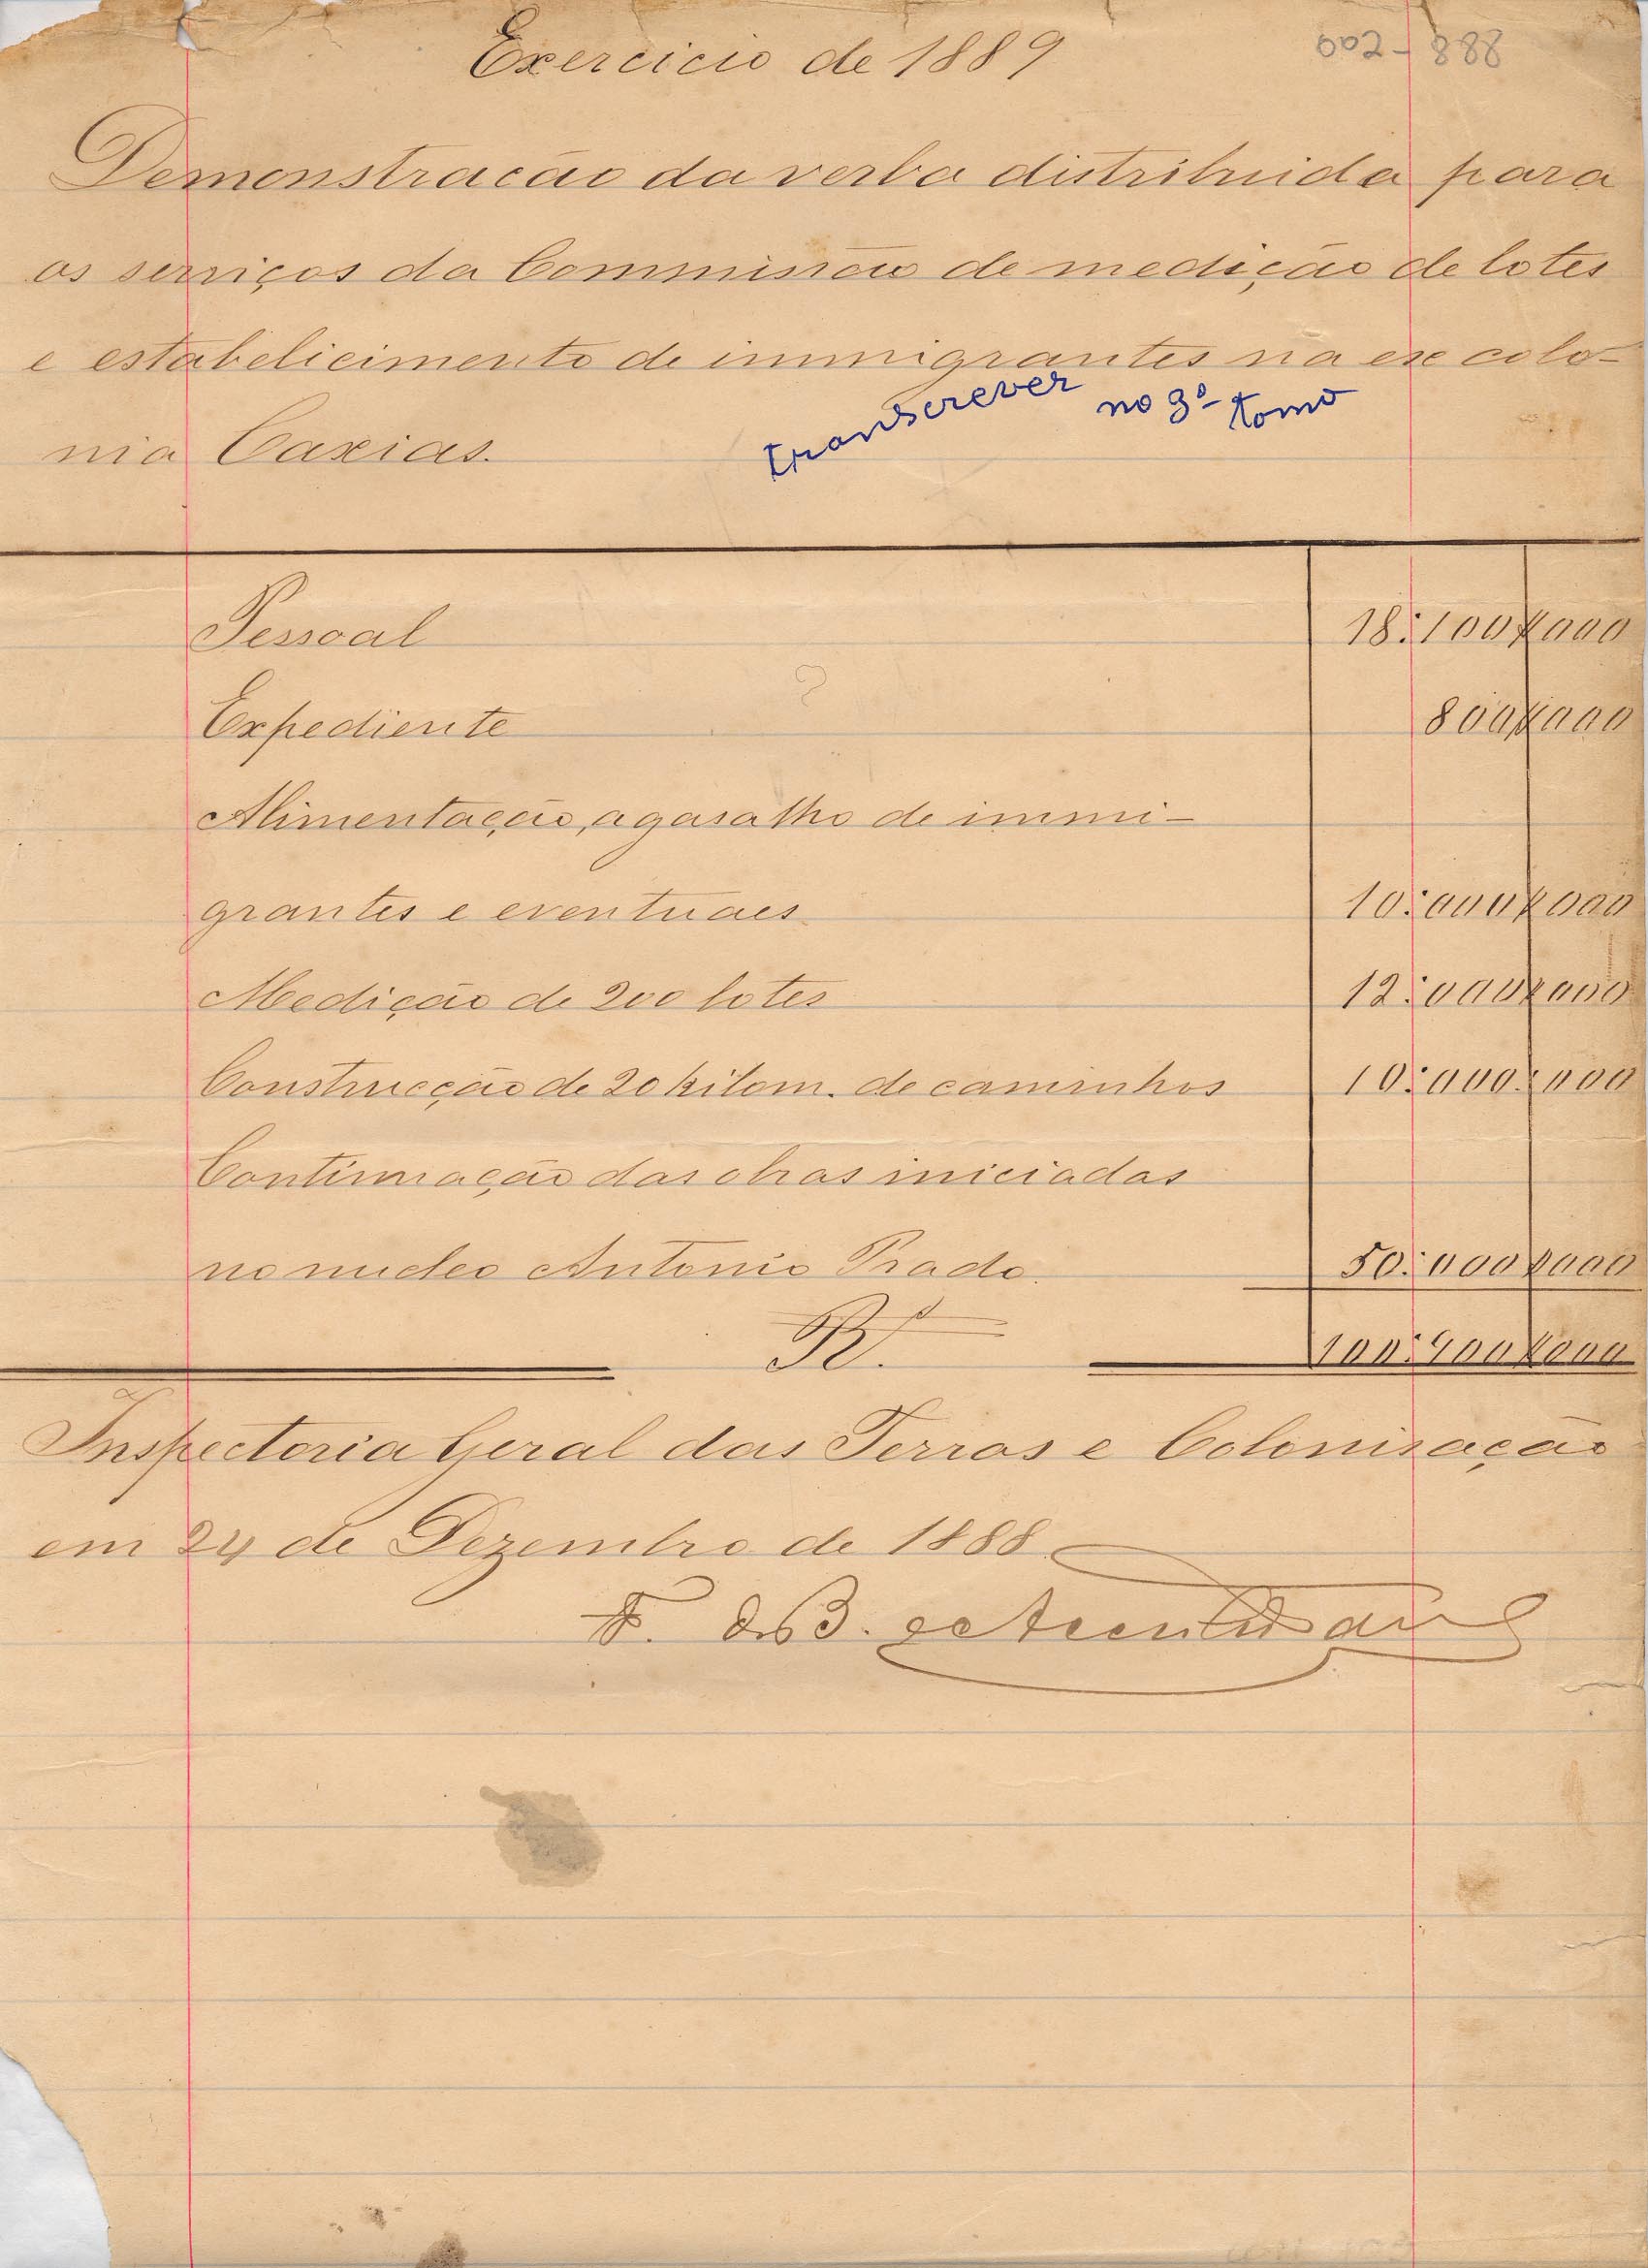 002-888
Exercicio de 1889
Demonstracão da verba distribuida para
os serviços da Commissão de medição de lotes
e estabelicimento de immigrantes na ex colo-
nia Caxias.
transcrever no 3º tomo
Pessoal 18:100$000
Expediente 800$000
Alimentação, agasalho de immi-
grantes e eventuaes 10:000$000
Medição de 200 lotes 12:000$000
Construcção de 20 kilom. de caminhos 10:000$000
Continuação das obras iniciadas
no nucleo Antonio Prado. 50:000$000
Rs. 100:900$000
Inspectoria Geral das Terras e Colonisação
em 24 de Dezembro de 1888
F. de B.